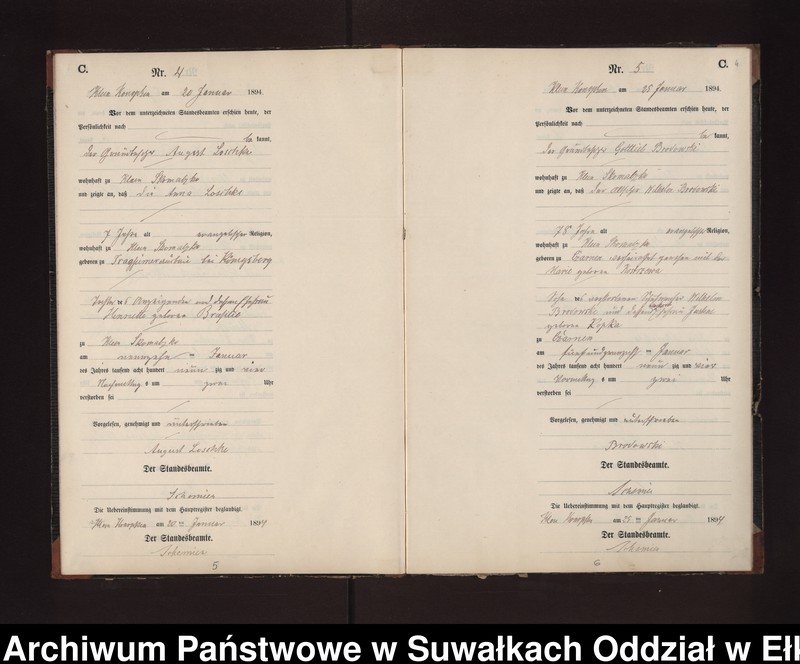 C.
Nr. 4
Klein Konopken am 20 Januar 1894.
Vor dem unterzeichneten Standesbeamten erschien heute, der
Persönlichkeit nach
be kannt,
der August Loschke
wohnhaft zu Klein Skomatzko
und zeigte an, daß die Anna Loschke
7 Jahre alt evangelischer Religion,
wohnhaft zu Klein Skomatzko
geboren zu bei Königsberg
Tochter des Anzeigenden und dessen Ehefrau
Henriette geborene
zu Klein Skomatzko
am neunzehn ten Januar
des Jahres tausend acht hundert neun zig und vier
Nachmittag s um zwei Uhr
verstorben sei
Vorgelesen, genehmigt und unterschrieben
August Loschke
Der Standesbeamte.
Die Uebereinstimmung mit dem Hauptregister beglaubigt.
Klein Konopken am 20 ten Januar 1894
Der Standesbeamte.
5
C. 6
Nr. 5
Klein Konopken am 25 Januar 1894.
Vor dem unterzeichneten Standesbeamten erschien heute, der
Persönlichkeit nach
be kannt,
der Gottlieb Brodowski
wohnhaft zu Klein Skomatzko
und zeigte an, daß der Wilhelm Brodowski
75 Jahre alt evangelischer Religion,
wohnhaft zu Klein Skomatzko
geboren zu Czarnen verheirathet gewesen mit der
Marie geborene
Sohn des verstorbenen Wilhelm
Brodowski und dessen Ehefrau
geborene Kopka
zu Czarnen
am fünfundzwanzigsten Januar
des Jahres tausend acht hundert neun zig und vier
Vormittag s um zwei Uhr
verstorben sei
Vorgelesen, genehmigt und unterschrieben
Brodowski
Der Standesbeamte.
Die Uebereinstimmung mit dem Hauptregister beglaubigt.
Klein Konopken am 25 ten Januar 1894
Der Standesbeamte.
6
Archiwum Państwowe w Suwałkach Oddział w Ełk